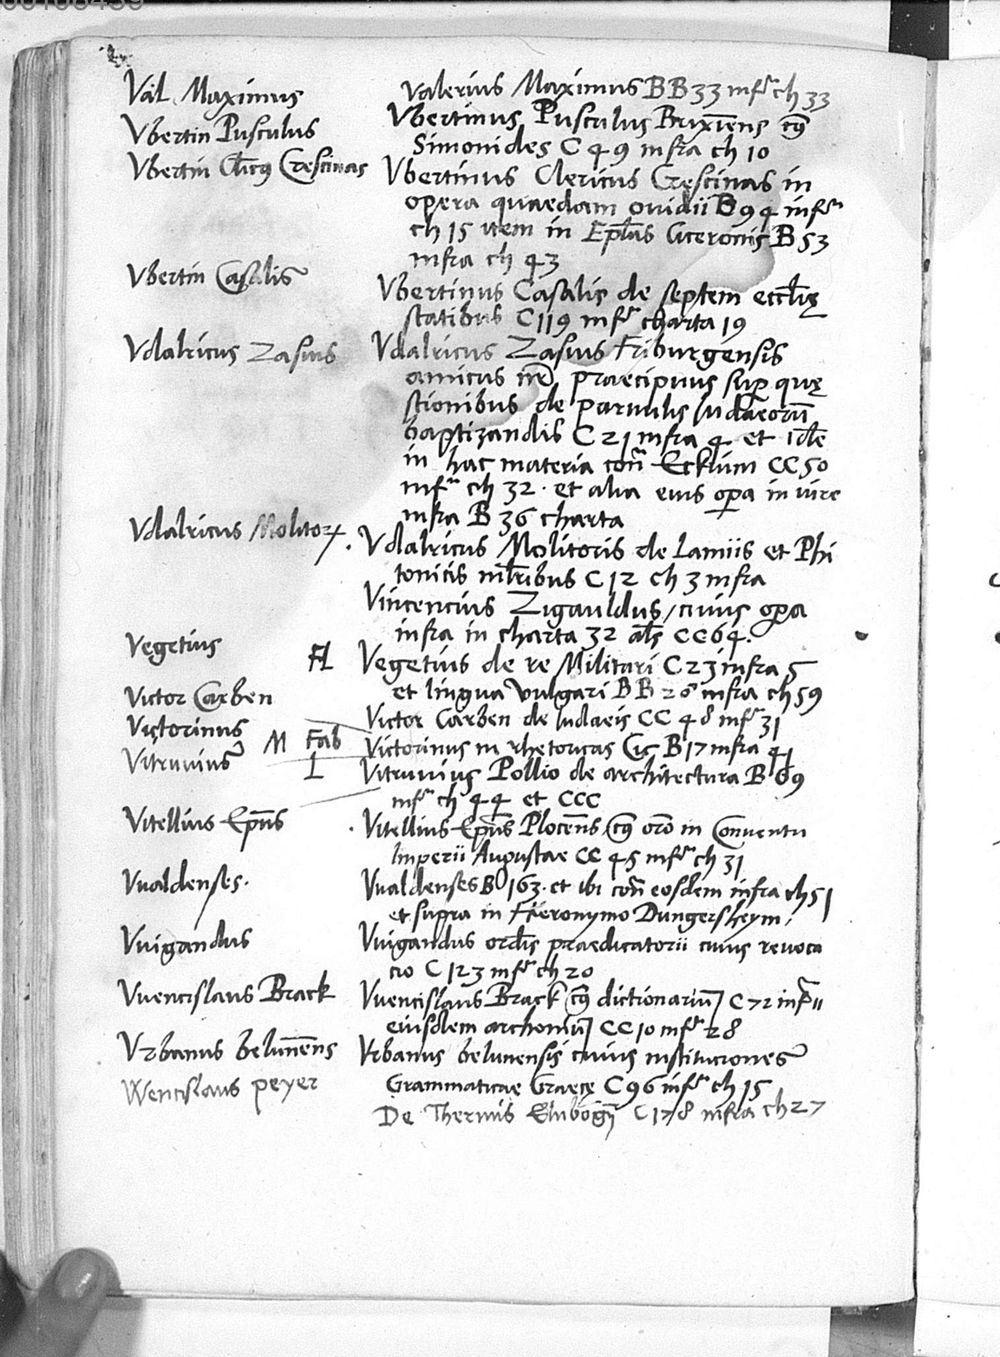 Val Maximus Valerius Maximus BB 33 infra ch 33
Vbertin Pusculus Vbertinus Pusculus Brixiens cuius
Simonides C 49 infra ch 10
Vbertin Clicus Crescinas Vbertinus Clericus Crescinas in
opera quaedam ouidii B 94 infra
ch 15 item in Eplas Ciceronis B 53
infra ch 43
Vbertin Casalis Vbertinus Casalis de septem ecclię
statibus C 119 infr charta 19
Vdalricus Zasius Vdalricus Zasius Friburgensis
amicus nr praecipuus sup quę
stionibus de paruulis Iudaeorum
baptizandis C 21 infra 4 et ide
in hac materia con Eckium CC 50
infra ch 32 · et alia eius opa in iure
infra B 36 charta
Vdalricus Molitor . Vdalricus Molitoris de Lamiis et Phi
tonicis mlribus C 12 ch 3 infra
Vincencius Zigauldus / cuius opa
infra in charta 32 als CC 64.
Vegetius Fl Vegetius de re Militari C 23 infra 5
et lingua vulgari BB 28 infra ch 59
Victor Carben Victor Carben de Iudaeis CC 48 infr 31
Victorinus M Fab Victorinus in rhetoricas Cic B 17 infra 41
Vitruuius L Vitruuius Pollio de architectura B 69
infra ch 44 et CCC
Vitellius Epus . Vitellius Epus Plocens cuius oro in Conuentu
Imperii Augustae CC 45 infr ch 31
Vualdenses. Vualdenses B 163. et ibi con eosdem infra ch 51
et supra in Hieronymo Dungersheym.
Vuigandus Vuigandus ordis praedicatorii cuius reuoca
cio C 123 infr ch 20
Vuencislaus Brack Vuencislaus Brack cuius dictionarium C 72 infra 11
eiusdem archonium CC 10 infr 28
Vrbanus belunens Vrbanus belunensis cuius institutiones
Grammaticae Graecę C 96 infr ch 15
Wencislaus peyer De Thermis Elnbogn C 178 infra ch 27